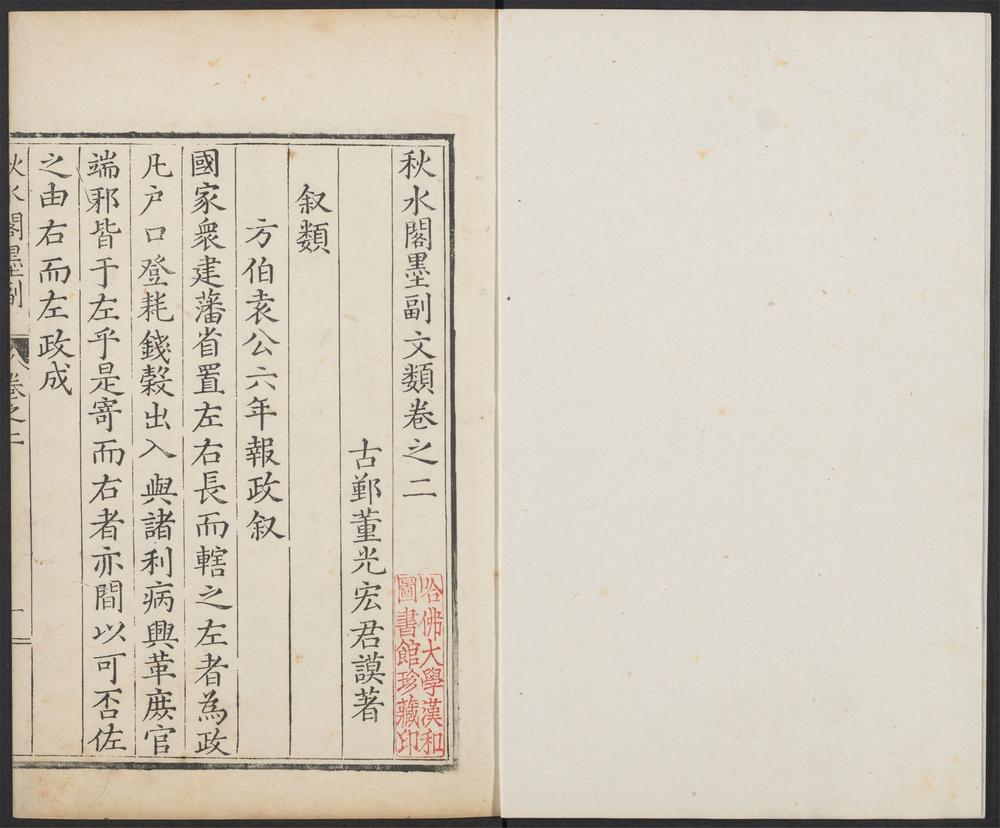 秋水閣墨副文類卷之二
古鄞董光宏君謨著
叙類
方伯袁公六年報政叙
國家衆建藩省置左右長而轄之左者為政
凡户口登耗錢穀出入與諸利病興革廢官
端邪皆于左乎是寄而右者亦間以可否佐
之由右而左政成
秋水閣墨副
卷之二
一
哈佛大學漢和
圖書館珍藏印